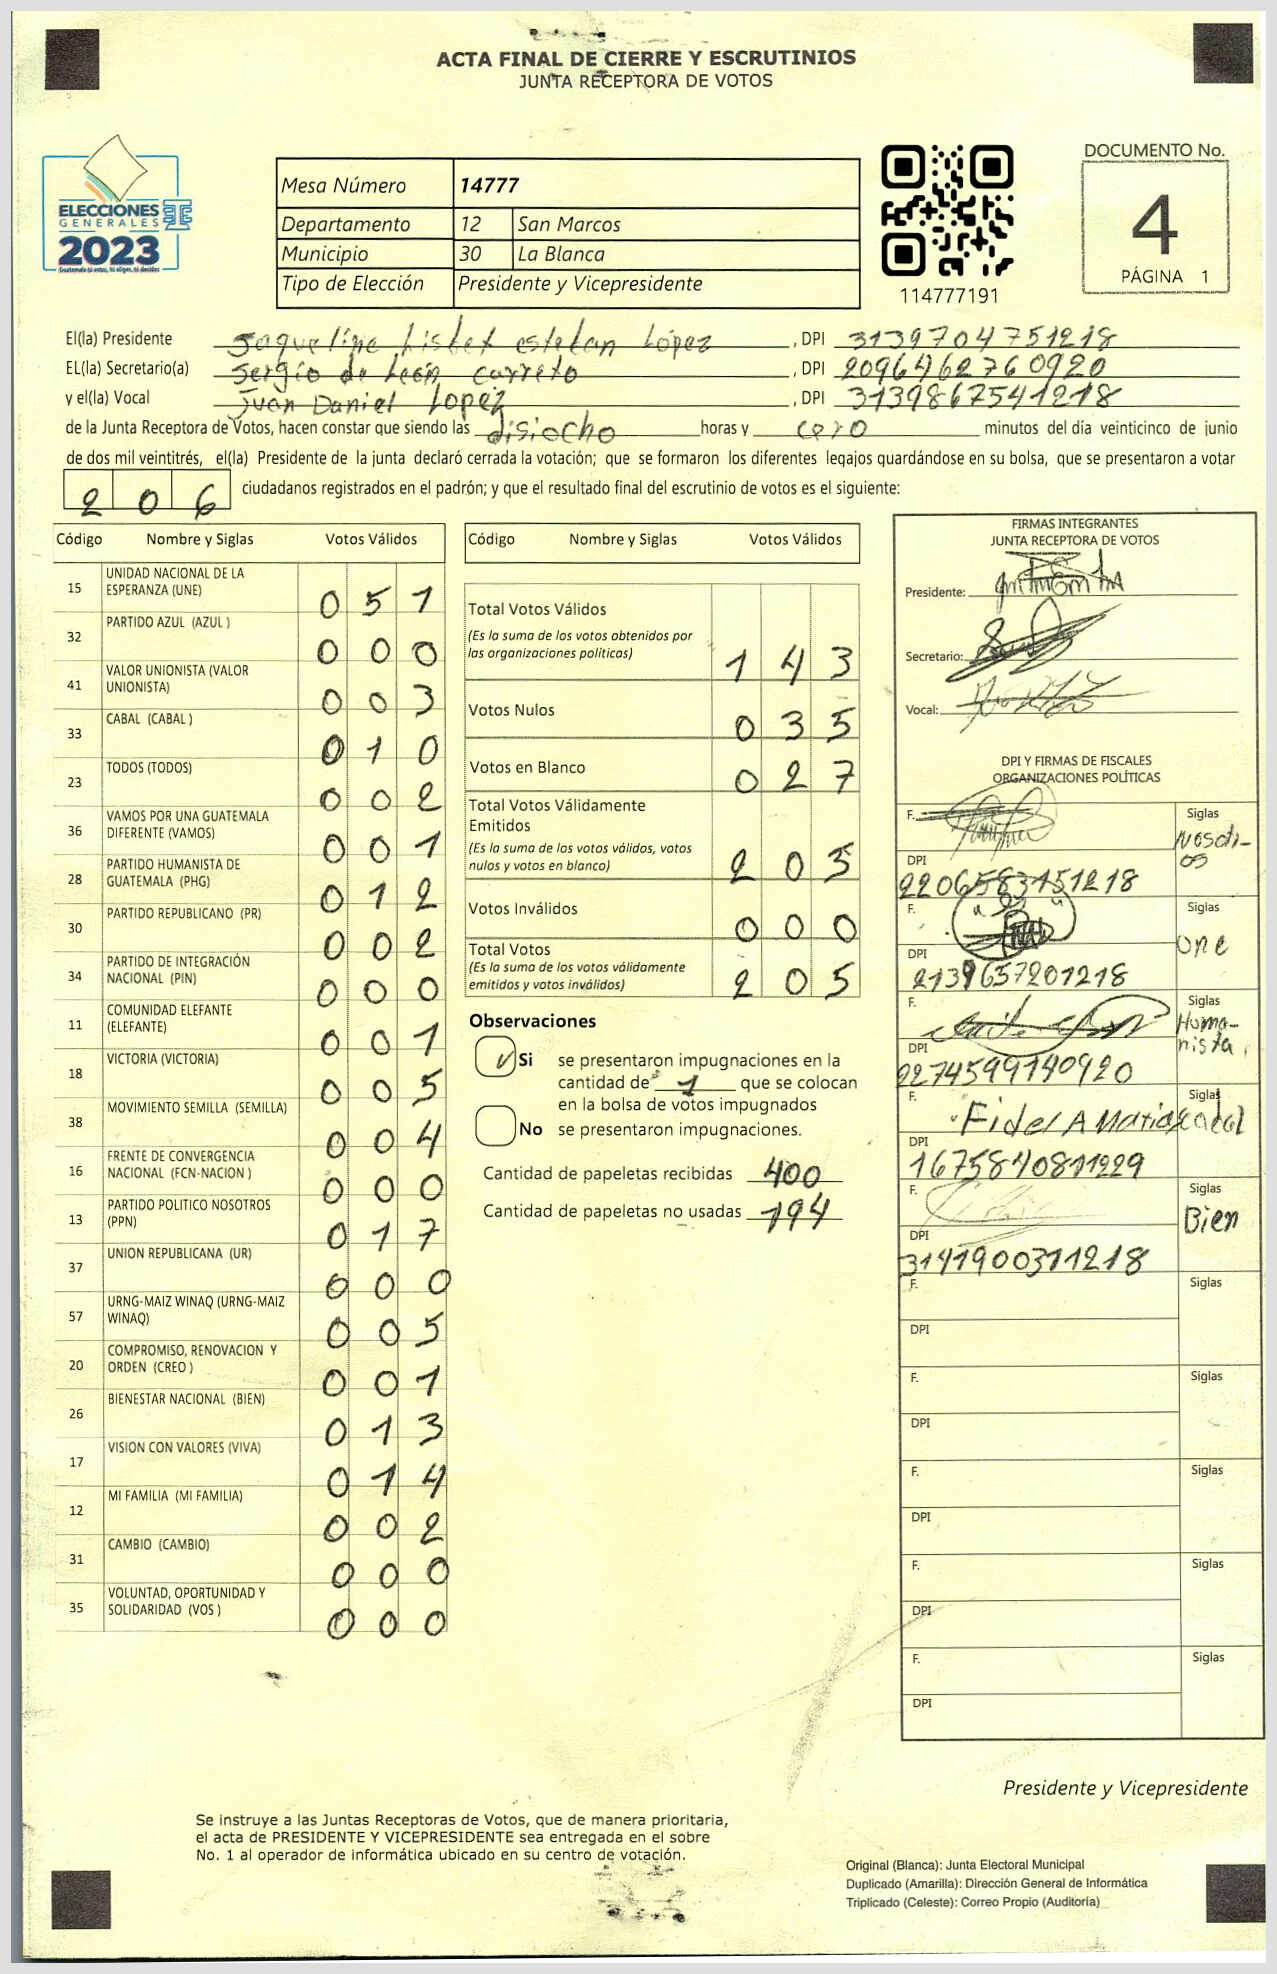 ACTA FINAL DE CIERRE Y ESCRUTINIOS
JUNTA RECEPTORA DE VOTOS
ELECCIONES
GENERALES
2023
Guatemala tú votas, tú eliges, tú decides
Mesa Número 14777
Departamento 12 San Marcos
Municipio 30 La Blanca
Tipo de Elección Presidente y Vicepresidente
114777191
DOCUMENTO No.
4
PÁGINA 1
El(la) Presidente Jaqueline Lisbet esteban López, DPI 3139704751218
EL(la) Secretario(a) Sergio de León carreto, DPI 2096462760920
y el(la) Vocal Juan Daniel Lopez, DPI 3139867541218
de la Junta Receptora de Votos, hacen constar que siendo las disiocho horas y cero minutos del día veinticinco de junio
de dos mil veintitrés, el(la) Presidente de la junta declaró cerrada la votación; que se formaron los diferentes legajos guardándose en su bolsa, que se presentaron a votar
206 ciudadanos registrados en el padrón; y que el resultado final del escrutinio de votos es el siguiente:
Código Nombre y Siglas Votos Válidos
15 UNIDAD NACIONAL DE LA ESPERANZA (UNE) 051
32 PARTIDO AZUL (AZUL ) 000
41 VALOR UNIONISTA (VALOR UNIONISTA) 003
33 CABAL (CABAL ) 010
23 TODOS (TODOS) 002
36 VAMOS POR UNA GUATEMALA DIFERENTE (VAMOS) 001
28 PARTIDO HUMANISTA DE GUATEMALA (PHG) 012
30 PARTIDO REPUBLICANO (PR) 002
34 PARTIDO DE INTEGRACIÓN NACIONAL (PIN) 000
11 COMUNIDAD ELEFANTE (ELEFANTE) 001
18 VICTORIA (VICTORIA) 005
38 MOVIMIENTO SEMILLA (SEMILLA) 004
16 FRENTE DE CONVERGENCIA NACIONAL (FCN-NACION ) 000
13 PARTIDO POLITICO NOSOTROS (PPN) 017
37 UNION REPUBLICANA (UR) 000
57 URNG-MAIZ WINAQ (URNG-MAIZ WINAQ) 005
20 COMPROMISO, RENOVACION Y ORDEN (CREO ) 001
26 BIENESTAR NACIONAL (BIEN) 013
17 VISION CON VALORES (VIVA) 014
12 MI FAMILIA (MI FAMILIA) 002
31 CAMBIO (CAMBIO) 000
35 VOLUNTAD, OPORTUNIDAD Y SOLIDARIDAD (VOS ) 000
Código Nombre y Siglas Votos Válidos
Total Votos Válidos
(Es la suma de los votos obtenidos por
las organizaciones políticas) 143
Votos Nulos 035
Votos en Blanco 027
Total Votos Válidamente
Emitidos
(Es la suma de los votos válidos, votos
nulos y votos en blanco) 205
Votos Inválidos 000
Total Votos
(Es la suma de los votos válidamente
emitidos y votos inválidos) 205
Observaciones
Si se presentaron impugnaciones en la
cantidad de 1 que se colocan
en la bolsa de votos impugnados
No se presentaron impugnaciones.
Cantidad de papeletas recibidas 400
Cantidad de papeletas no usadas 194
FIRMAS INTEGRANTES
JUNTA RECEPTORA DE VOTOS
Presidente:
Secretario:
Vocal:
DPI Y FIRMAS DE FISCALES
ORGANIZACIONES POLÍTICAS
F. Siglas Nosotros
DPI 2206583151218
F. Siglas une
DPI 2139657201218
F. Siglas Humanista
DPI 2274599140920
F. Fidel A Matias Siglas
DPI 1675840811229
F. Siglas Bien
DPI 3141900311218
F. Siglas
DPI
F. Siglas
DPI
F. Siglas
DPI
F. Siglas
DPI
F. Siglas
DPI
Presidente y Vicepresidente
Se instruye a las Juntas Receptoras de Votos, que de manera prioritaria,
el acta de PRESIDENTE Y VICEPRESIDENTE sea entregada en el sobre
No. 1 al operador de informática ubicado en su centro de votación.
Original (Blanca): Junta Electoral Municipal
Duplicado (Amarilla): Dirección General de Informática
Triplicado (Celeste): Correo Propio (Auditoría)